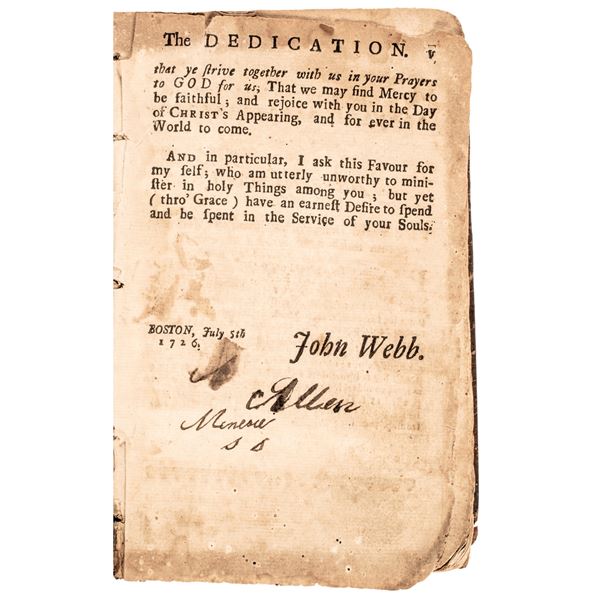 The DEDICATION. v
that ye ſtrive together with us in your Prayers
to GOD for us; That we may find Mercy to
be faithful; and rejoice with you in the Day
of CHRIST'S Appearing, and for ever in the
World to come.
AND in particular, I ask this Favour for
my ſelf; who am utterly unworthy to mini-
ſter in holy Things among you; but yet
(thro' Grace) have an earneſt Deſire to ſpend
and be ſpent in the Service of your Souls.
BOSTON, July 5th
1726.
John Webb.
Allen